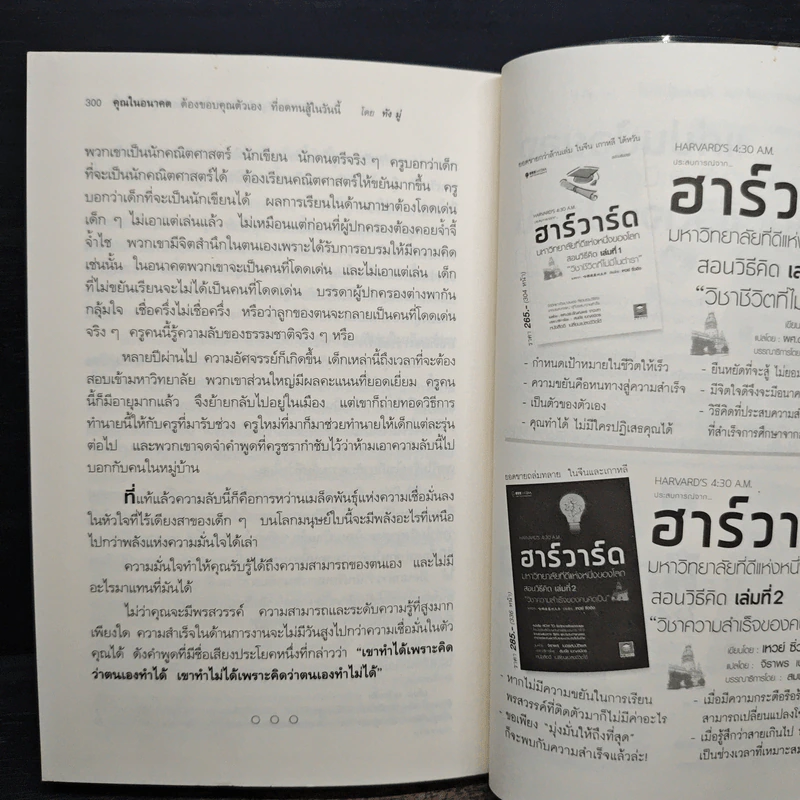 300 คุณในอนาคต ต้องขอบคุณตัวเอง ที่อดทนสู้ในวันนี้ โดย ทัง มู่
พวกเขาเป็นนักคณิตศาสตร์ นักเขียน นักดนตรีจริง ๆ ครูบอกว่าเด็ก
ที่จะเป็นนักคณิตศาสตร์ได้ ต้องเรียนคณิตศาสตร์ให้ขยันมากขึ้น ครู
บอกว่าเด็กที่จะเป็นนักเขียนได้ ผลการเรียนในด้านภาษาต้องโดดเด่น
เด็ก ๆ ไม่เอาแต่เล่นแล้ว ไม่เหมือนแต่ก่อนที่ผู้ปกครองต้องคอยจ้ำจี้
จ้ำไช พวกเขามีจิตสำนึกในตนเองเพราะได้รับการอบรมให้มีความคิด
เช่นนั้น ในอนาคตพวกเขาจะเป็นคนที่โดดเด่น และไม่เอาแต่เล่น เด็ก
ที่ไม่ขยันเรียนจะไม่ได้เป็นคนที่โดดเด่น บรรดาผู้ปกครองต่างพากัน
กลุ้มใจ เชื่อครึ่งไม่เชื่อครึ่ง หรือว่าลูกของตนจะกลายเป็นคนที่โดดเด่น
จริง ๆ ครูคนนี้รู้ความลับของธรรมชาติจริง ๆ หรือ
หลายปีผ่านไป ความอัศจรรย์ก็เกิดขึ้น เด็กเหล่านี้ถึงเวลาที่จะต้อง
สอบเข้ามหาวิทยาลัย พวกเขาส่วนใหญ่มีผลคะแนนที่ยอดเยี่ยม ครูคน
นี้ก็มีอายุมากแล้ว จึงย้ายกลับไปอยู่ในเมือง แต่เขาก็ถ่ายทอดวิธีการ
ทำนายนี้ให้กับครูที่มารับช่วง ครูใหม่ที่มาก็มาช่วยทำนายให้เด็กแต่ละรุ่น
ต่อไป และพวกเขาจดจำคำพูดที่ครูชรากำชับไว้ว่าห้ามเอาความลับนี้ไป
บอกกับคนในหมู่บ้าน
ที่แท้แล้วความลับนี้ก็คือการหว่านเมล็ดพันธุ์แห่งความเชื่อมั่นลง
ในหัวใจที่ไร้เดียงสาของเด็ก ๆ บนโลกมนุษย์ใบนี้จะมีพลังอะไรที่เหนือ
ไปกว่าพลังแห่งความมั่นใจได้เล่า
ความมั่นใจทำให้คุณรับรู้ได้ถึงความสามารถของตนเอง และไม่มี
อะไรมาแทนที่มันได้
ไม่ว่าคุณจะมีพรสวรรค์ ความสามารถและระดับความรู้ที่สูงมาก
เพียงใด ความสำเร็จในด้านการงานจะไม่มีวันสูงไปกว่าความเชื่อมั่นในตัว
คุณได้ ดังคำพูดที่มีชื่อเสียงประโยคหนึ่งที่กล่าวว่า "เขาทำได้เพราะคิด
ว่าตนเองทำได้ เขาทำไม่ได้เพราะคิดว่าตนเองทำไม่ได้"
ยอดขายกว่าล้านเล่ม ในจีน เกาหลี ไต้หวัน
HARVARD'S 4:30 A.M.
ฮาร์วาร์ด
มหาวิทยาลัยที่ดีแห่งหนึ่งของโลก
สอนวิธีคิด เล่มที่ 1
"วิชาชีวิตที่ไม่มีในตำรา"
ราคา 265.- (304 หน้า)
HARVARD'S 4:30 A.M.
ประสบการณ์จาก...
ฮาร์ว
มหาวิทยาลัยที่ดีแห่
สอนวิธีคิด เล
"วิชาชีวิตที่ไ
เขีย
แปลโดย : ผศ.
บรรณาธิการโดย :
- กำหนดเป้าหมายในชีวิตให้เร็ว
- ความขยันคือหนทางสู่ความสำเร็จ
- เป็นตัวของตัวเอง
- คุณทำได้ ไม่มีใครปฏิเสธคุณได้
- ยืนหยัดที่จะสู้ ไม่ยอม
- มีจิตใจดีจึงจะมีอนาค
- วิธีคิดที่ประสบความสำ
ที่สำเร็จการศึกษาจาก
ยอดขายถล่มทลาย ในจีนและเกาหลี
HARVARD'S 4:30 A.M.
ฮาร์วาร์ด
มหาวิทยาลัยที่ดีแห่งหนึ่งของโลก
สอนวิธีคิด เล่มที่ 2
"วิชาความสำเร็จของคนคิดเป็น"
ราคา 285.- (336 หน้า)
HARVARD'S 4:30 A.M.
ประสบการณ์จาก...
ฮาร์วา
มหาวิทยาลัยที่ดีแห่งหนึ่
สอนวิธีคิด เล่มที่ 2
"วิชาความสำเร็จของค
เขียนโดย : เหวย์ ซิ่ว
แปลโดย : จิราพร เ
บรรณาธิการโดย : สม
- หากไม่มีความขยันในการเรียน
พรสวรรค์ที่ติดตัวมาก็ไม่มีค่าอะไร
- ขอเพียง "มุ่งมั่นให้ถึงที่สุด"
ก็จะพบกับความสำเร็จแล้วล่ะ!
- เมื่อมีความกระตือรือร้
สามารถเปลี่ยนแปลงโ
- เมื่อรู้สึกว่าสายเกินไป
เป็นช่วงเวลาที่เหมาะสม